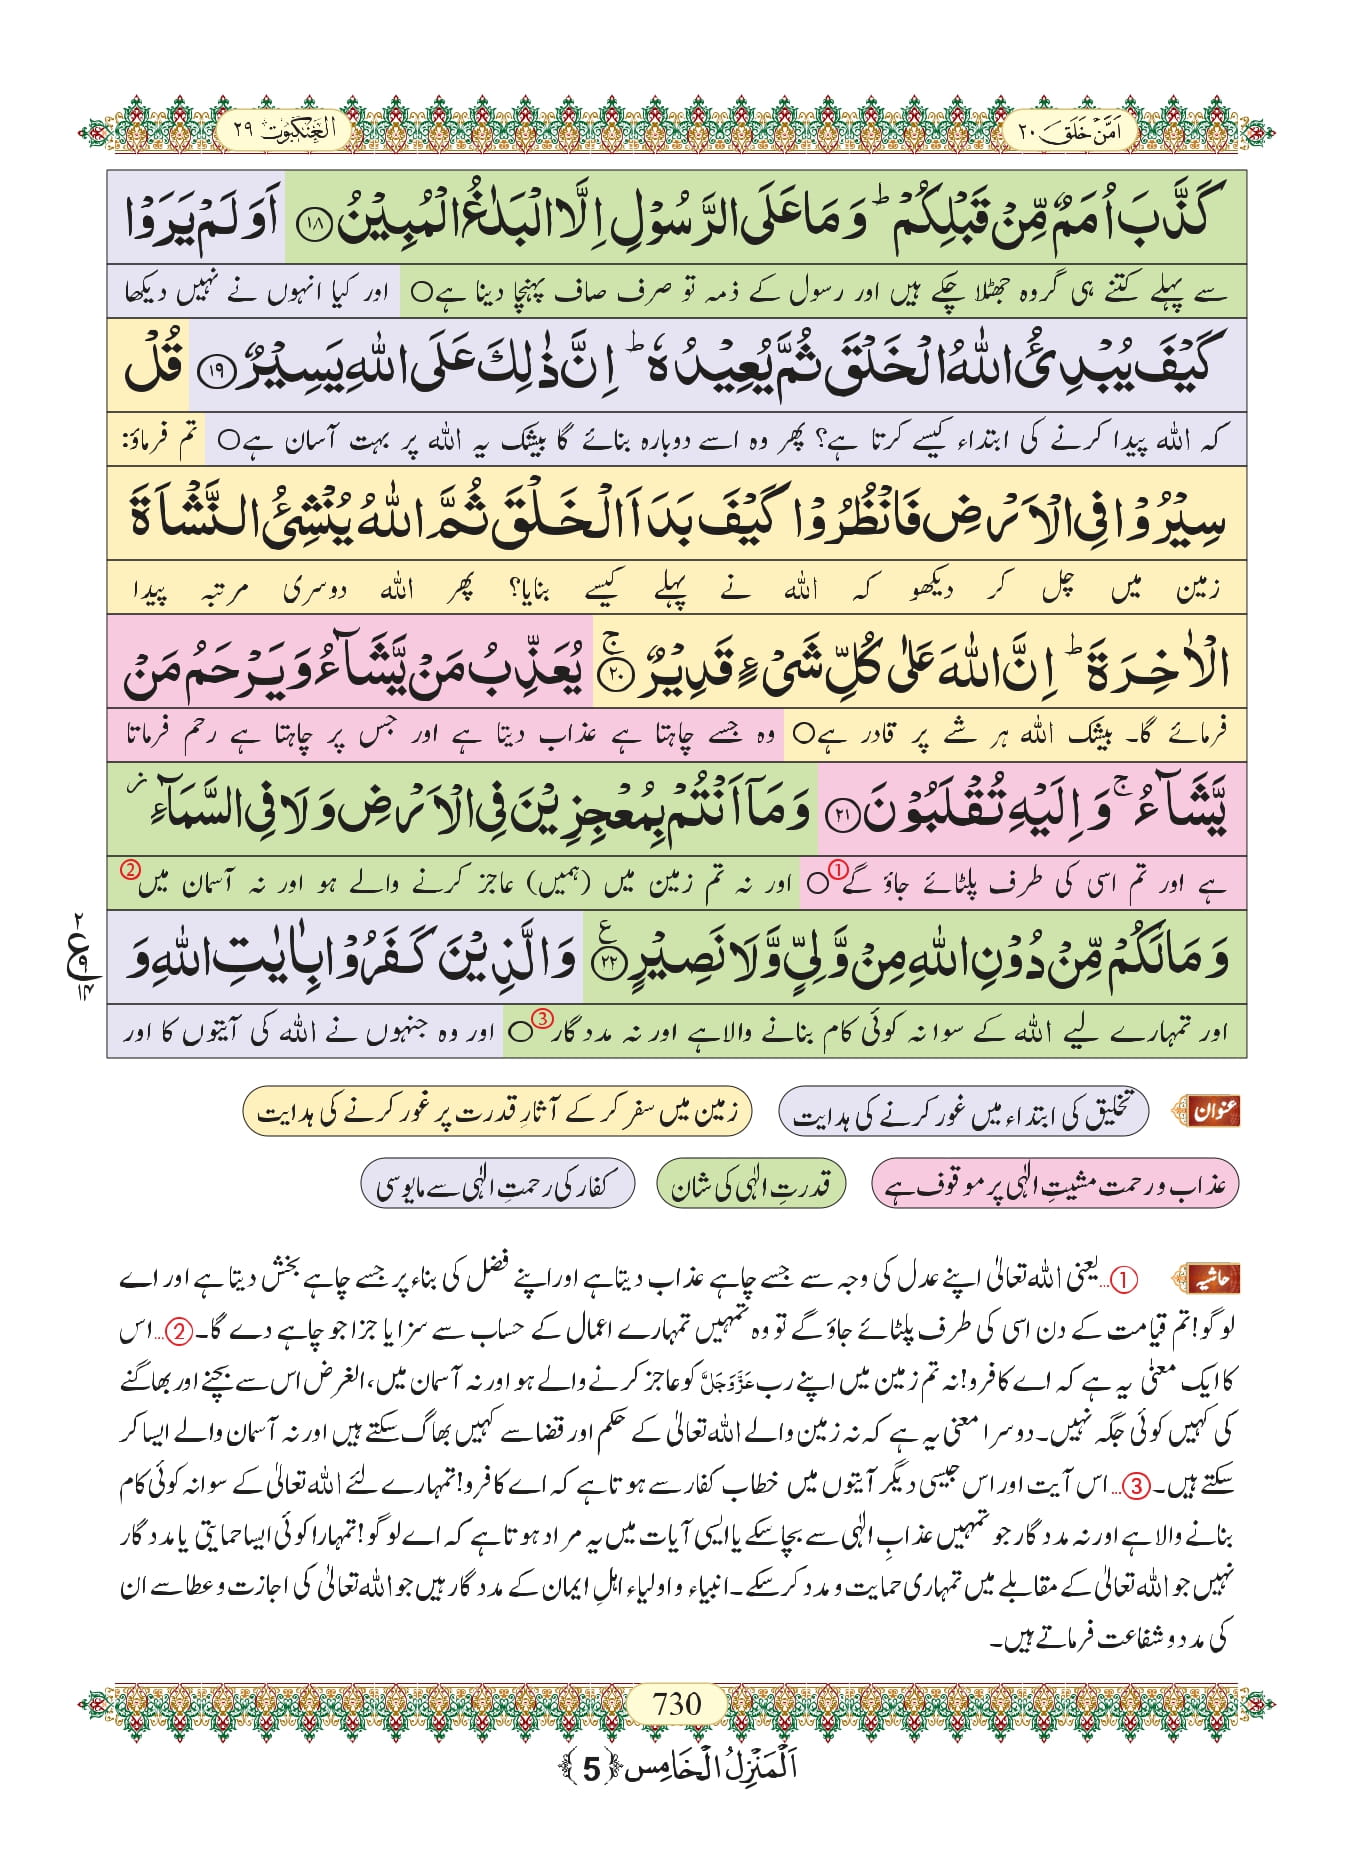 اَمَّنْ خَلَقَ ٢٠
العَنْكَبُوْت ٢٩
كَذَّبَ اُمَمٌ مِّنْ قَبْلِكُمْ ؕ وَ مَا عَلَى الرَّسُوْلِ اِلَّا الْبَلٰغُ الْمُبِيْنُ ﴿١٨﴾ اَوَ لَمْ يَرَوْا
سے پہلے کتنے ہی گروہ جھٹلا چکے ہیں اور رسول کے ذمہ تو صرف صاف پہنچا دینا ہے○ اور کیا انہوں نے نہیں دیکھا
كَيْفَ يُبْدِئُ اللّٰهُ الْخَلْقَ ثُمَّ يُعِيْدُهٗ ؕ اِنَّ ذٰلِكَ عَلَى اللّٰهِ يَسِيْرٌ ﴿١٩﴾ قُلْ
کہ اللہ پیدا کرنے کی ابتداء کیسے کرتا ہے؟ پھر وہ اسے دوبارہ بنائے گا بیشک یہ اللہ پر بہت آسان ہے○ تم فرماؤ:
سِيْرُوْا فِي الْاَرْضِ فَانْظُرُوْا كَيْفَ بَدَاَ الْخَلْقَ ثُمَّ اللّٰهُ يُنْشِئُ النَّشْاَةَ
زمین میں چل کر دیکھو کہ اللہ نے پہلے کیسے بنایا؟ پھر اللہ دوسری مرتبہ پیدا
الْاٰخِرَةَ ؕ اِنَّ اللّٰهَ عَلٰى كُلِّ شَيْءٍ قَدِيْرٌ ﴿٢٠﴾ۚ يُعَذِّبُ مَنْ يَّشَآءُ وَ يَرْحَمُ مَنْ
فرمائے گا۔ بیشک اللہ ہر شے پر قادر ہے○ وہ جسے چاہتا ہے عذاب دیتا ہے اور جس پر چاہتا ہے رحم فرماتا
يَّشَآءُ ۚ وَ اِلَيْهِ تُقْلَبُوْنَ ﴿٢١﴾ وَ مَاۤ اَنْتُمْ بِمُعْجِزِيْنَ فِي الْاَرْضِ وَ لَا فِي السَّمَآءِ ؗ
ہے اور تم اسی کی طرف پلٹائے جاؤ گے①○ اور نہ تم زمین میں (ہمیں) عاجز کرنے والے ہو اور نہ آسمان میں②
وَ مَا لَكُمْ مِّنْ دُوْنِ اللّٰهِ مِنْ وَّلِيٍّ وَّ لَا نَصِيْرٍ ﴿٢٢﴾ ع وَ الَّذِيْنَ كَفَرُوْا بِاٰيٰتِ اللّٰهِ وَ
٢ ع ٩ ١٤
اور تمہارے لیے اللہ کے سوا نہ کوئی کام بنانے والا ہے اور نہ مددگار③○ اور وہ جنہوں نے اللہ کی آیتوں کا اور
عنوان تخلیق کی ابتداء میں غور کرنے کی ہدایت زمین میں سفر کر کے آثارِ قدرت پر غور کرنے کی ہدایت
عذاب و رحمت مشیتِ الٰہی پر موقوف ہے قدرتِ الٰہی کی شان کفار کی رحمتِ الٰہی سے مایوسی
حاشیہ ①...یعنی اللہ تعالیٰ اپنے عدل کی وجہ سے جسے چاہے عذاب دیتا ہے اور اپنے فضل کی بناء پر جسے چاہے بخش دیتا ہے اور اے
لوگو! تم قیامت کے دن اسی کی طرف پلٹائے جاؤ گے تو وہ تمہیں تمہارے اعمال کے حساب سے سزا یا جزا جو چاہے دے گا۔ ②...اس
کا ایک معنیٰ یہ ہے کہ اے کافرو! نہ تم زمین میں اپنے رب عَزَّوَجَلَّ کو عاجز کرنے والے ہو اور نہ آسمان میں، الغرض اس سے بچنے اور بھاگنے
کی کہیں کوئی جگہ نہیں۔ دوسرا معنی یہ ہے کہ نہ زمین والے اللہ تعالیٰ کے حکم اور قضا سے کہیں بھاگ سکتے ہیں اور نہ آسمان والے ایسا کر
سکتے ہیں۔ ③... اس آیت اور اس جیسی دیگر آیتوں میں خطاب کفار سے ہوتا ہے کہ اے کافرو! تمہارے لئے اللہ تعالیٰ کے سوا نہ کوئی کام
بنانے والا ہے اور نہ مددگار جو تمہیں عذابِ الٰہی سے بچا سکے یا ایسی آیات میں یہ مراد ہوتا ہے کہ اے لوگو! تمہارا کوئی ایسا حمایتی یا مددگار
نہیں جو اللہ تعالیٰ کے مقابلے میں تمہاری حمایت و مدد کر سکے۔ انبیاء و اولیاء اہلِ ایمان کے مددگار ہیں جو اللہ تعالیٰ کی اجازت و عطا سے ان
کی مدد و شفاعت فرماتے ہیں۔
730
اَلْمَنْزِلُ الْخَامِس ﴿5﴾